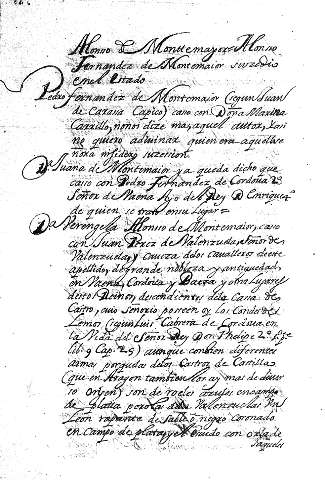 Alonso de Monttemayor Alonso
Fernandez de Montemaior suzedio
en el Estado
Pedro Fernandez de Montemaior (segun Juan
de Cazasa Capico) caso con Doña Marina
Carrillo, no nos dize mas aquel autor, Y asi
no quiero adivinar quien era aquella se
ñora ni si dejo suzesion
Da Juana de Montemaior ya queda dicho que
caso con Pedro Fernandez de Cordoua 2º
Señor de Vaena hijo del Rey D Enrique 2º
de quien se trato en su Lugar =
Da Verengela Alonso de Montemaior, caso
con Juan Perez de Valenzuela, señor de
Valenzuela, y caveza de los cavalleros de este
apellido, de grande nobleza y antiguedad,
en Vaena, Cordova y Baeza y otros Lugares
de estos Reinos, descendientes de la Casa de
Castro, cuio Señorio poseen oy los Condes de
Lemos (segun Luis Cabrera de Cordoua en
la Vida del Señor Rey Don Phelipe 2º
lib. 9 Cap. 25) aunque con bien diferentes
armas porque las de los Castros de Castilla
que en Aragon tambien los ay mas de diver
so origen, son de roeles azules en campo
de platta pero las de los Valenzuelas Un
Leon rapante de negro Coronado
en campo de platta, y el escudo con orla de
Jaqueles